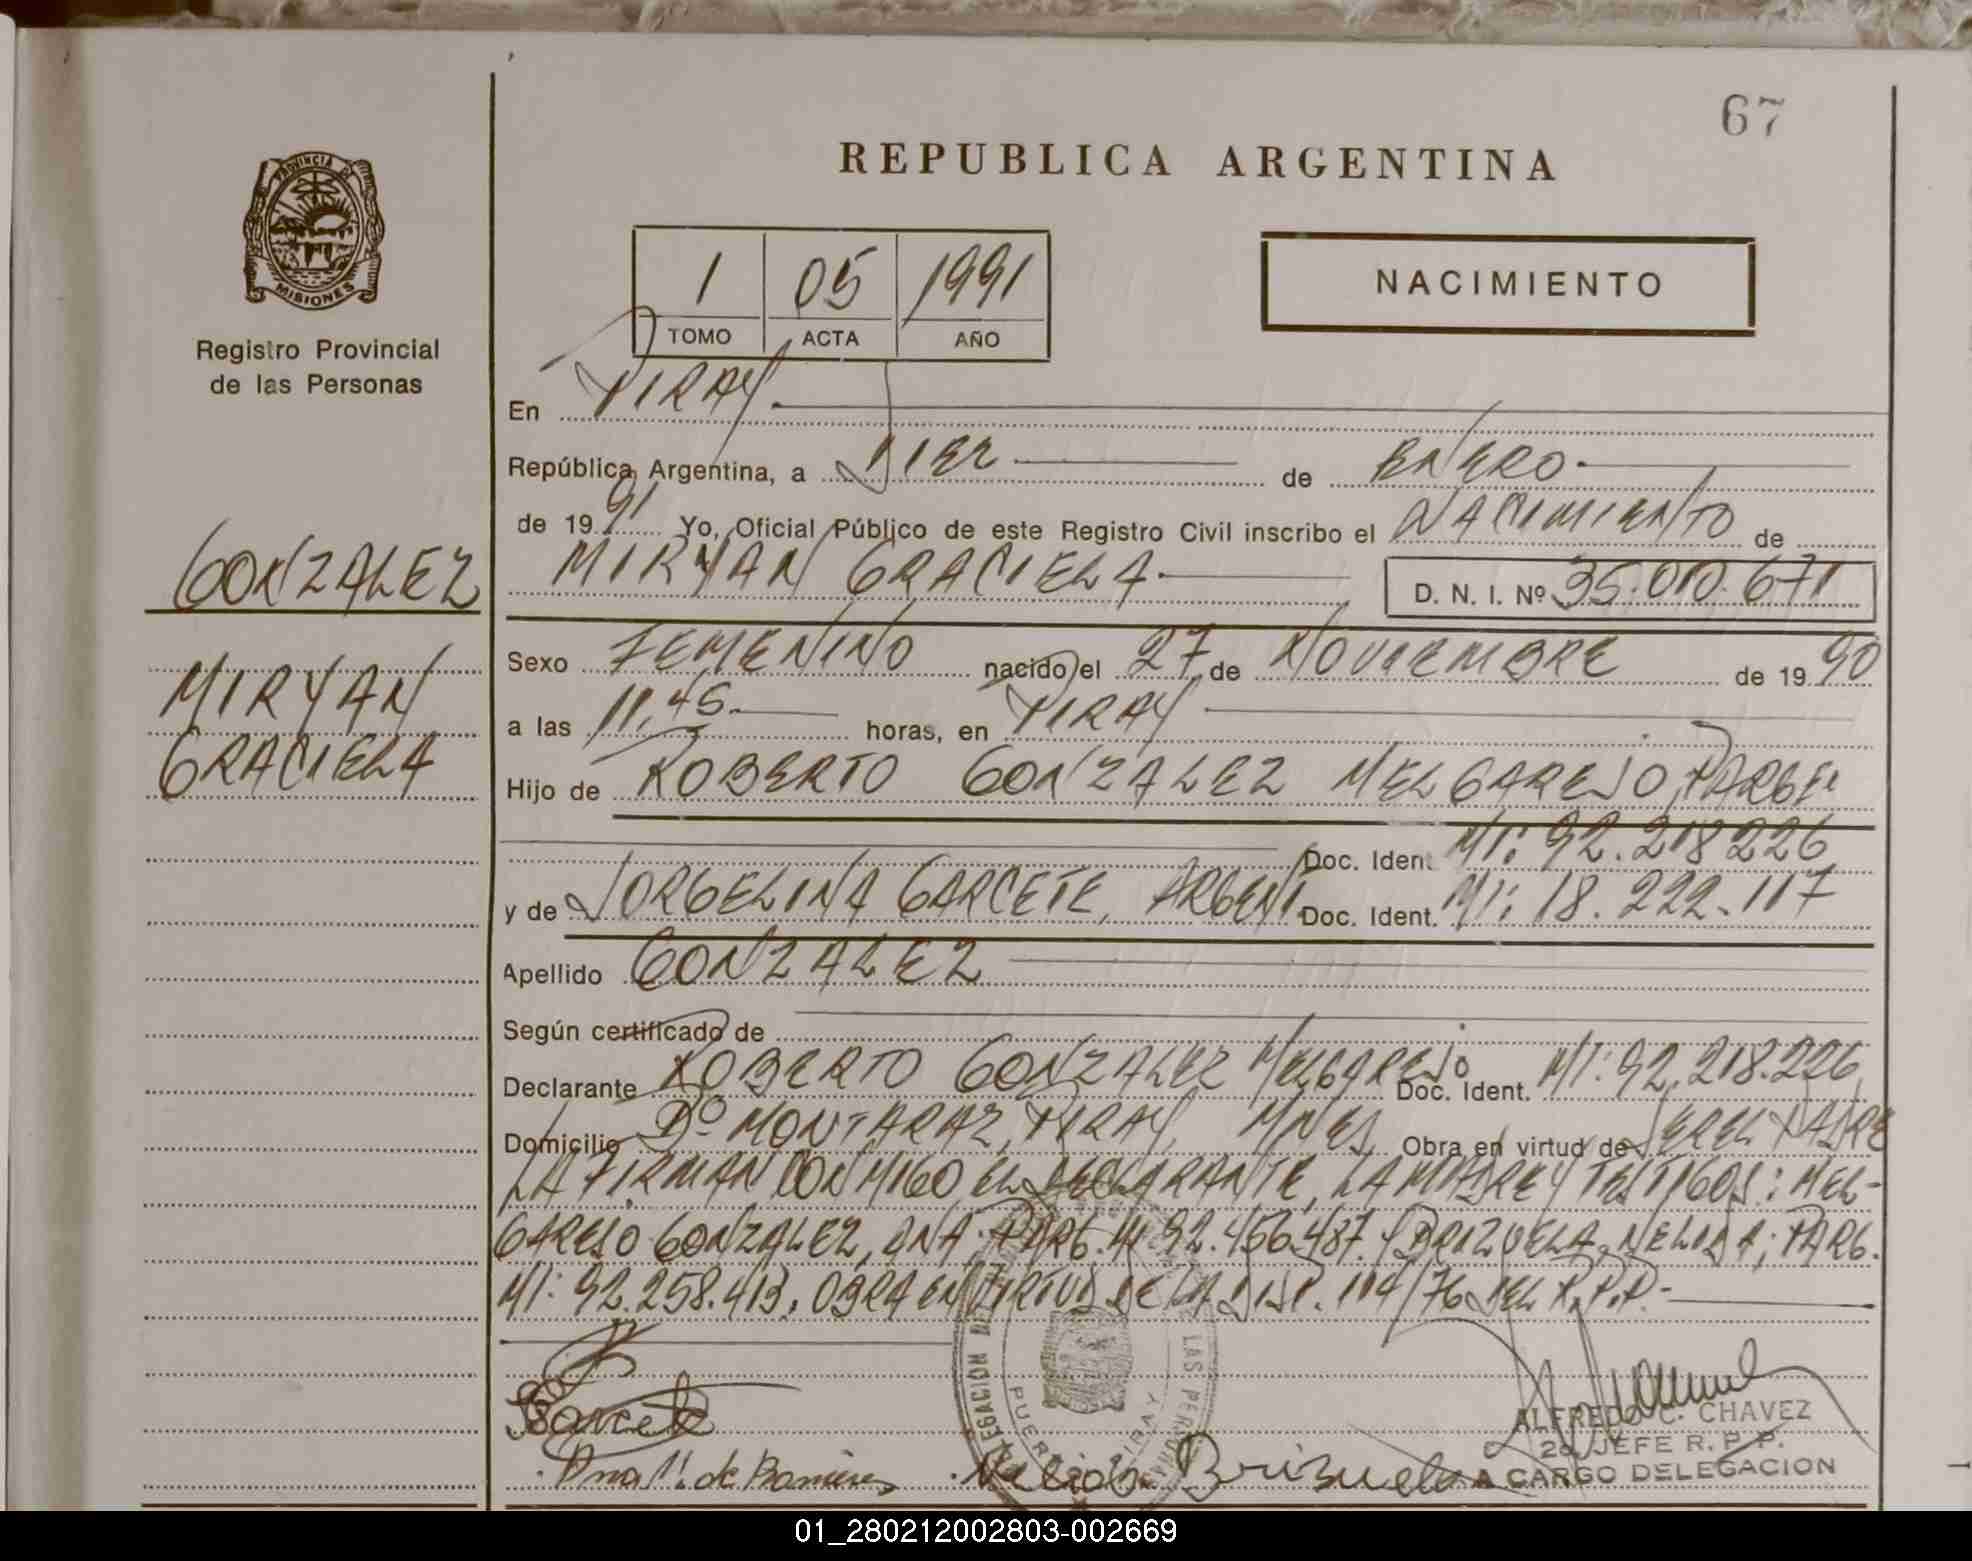 67
REPUBLICA ARGENTINA
PROVINCIA DE
MISIONES
Registro Provincial
de las Personas
1 05 1991
TOMO ACTA AÑO
NACIMIENTO
En PIRAY
República Argentina, a DIEZ de ENERO
de 1991 Yo, Oficial Público de este Registro Civil inscribo el NACIMIENTO de
MIRYAN GRACIELA D. N. I. Nº 35.010.671
GONZALEZ
MIRYAN
GRACIELA
Sexo FEMENINO nacido el 27 de NOVIEMBRE de 1990
a las 11,45 horas, en PIRAY
Hijo de ROBERTO GONZALEZ MELGAREJO, PARG
Doc. Ident. MI: 92.218226
y de JORGELINA GARCETE, ARGENT. Doc. Ident. MI: 18.222.117
Apellido GONZALEZ
Según certificado de
Declarante ROBERTO GONZALEZ MELGAREJO Doc. Ident. MI: 92.218.226
Domicilio Bº MONTARAZ, PIRAY, MNES Obra en virtud de SER EL PADRE
LA FIRMAN CONMIGO EL DECLARANTE, LA MADRE Y TESTIGOS: MEL-
GAREJO GONZALEZ, ANA PARG. MI 92.456.487. Y BRIZUELA, NELIDA; PARG.
MI: 92.258.413. OBRA EN VIRTUD DE LA DISP. 114/76 DEL R.P.P.-
Garcete
DELEGACION DE LAS PERSONAS
PUERTO PIRAY
Nelida Brizuela
ALFREDO C. CHAVEZ
2do JEFE R. P. P.
A CARGO DELEGACION
01_280212002803-002669